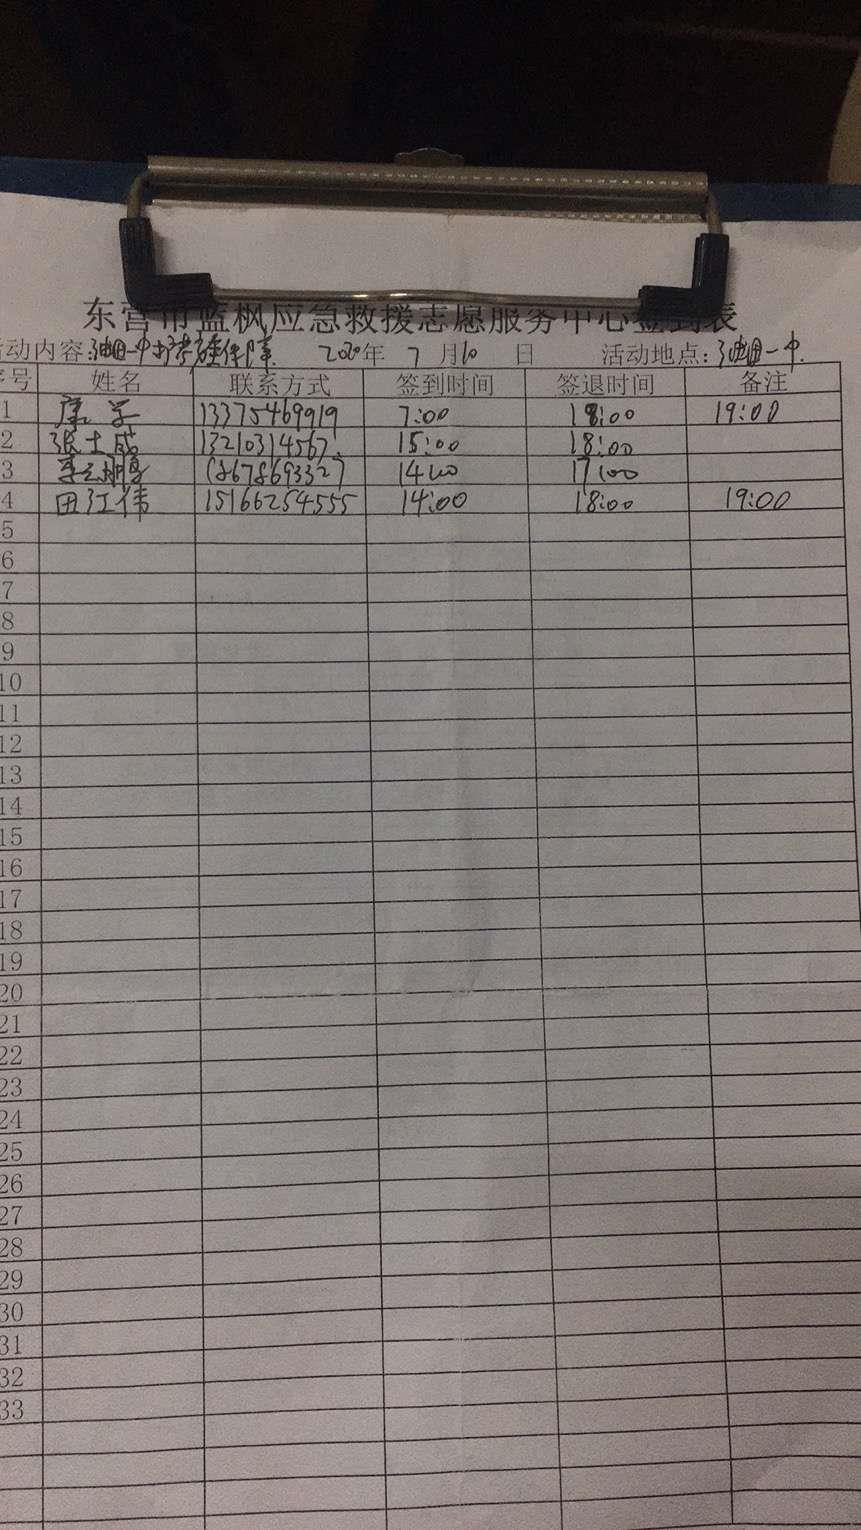 东营市蓝枫应急救援志愿服务中心签到表
动内容:油田一中护考 保障 2020年 7月10日 活动地点:油田一中
序号 姓名 联系方式 签到时间 签退时间 备注
1 康 13375469919 7:00 18:00 19:00
2 张士成 13210314567 15:00 18:00
3 18678693327 14:00 17:00
4 田江伟 15166254555 14:00 18:00 19:00
5
6
7
8
9
10
11
12
13
14
15
16
17
18
19
20
21
22
23
24
25
26
27
28
29
30
31
32
33